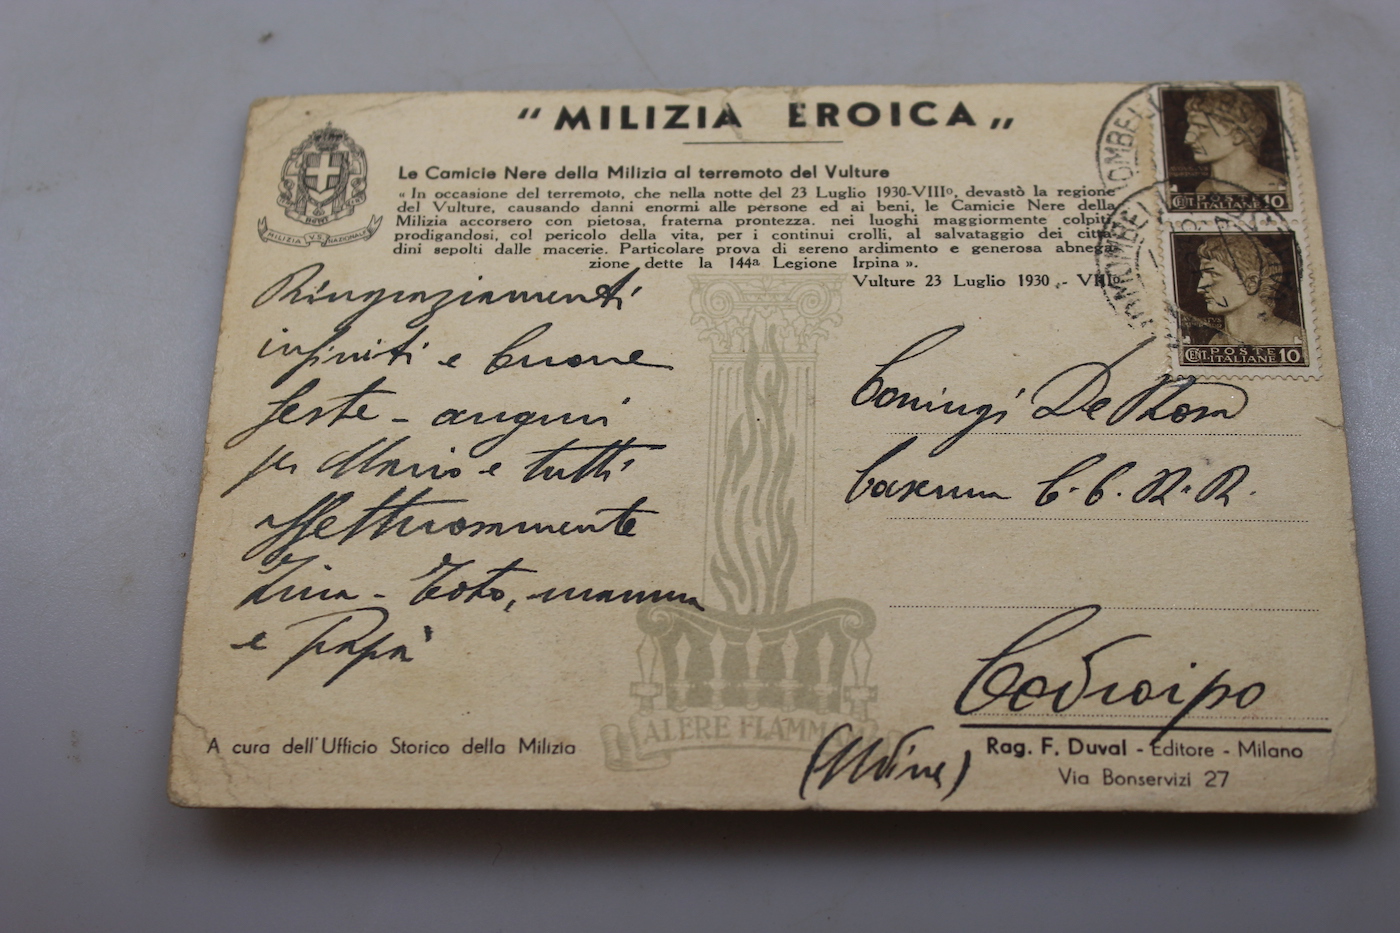 " MILIZIA EROICA "
MILIZIA V.S. NAZIONALE
Le Camicie Nere della Milizia al terremoto del Vulture
« In occasione del terremoto, che nella notte del 23 Luglio 1930-VIIIº, devastò la regione
del Vulture, causando danni enormi alle persone ed ai beni, le Camicie Nere della
Milizia accorsero con pietosa, fraterna prontezza. nei luoghi maggiormente colpiti
prodigandosi, col pericolo della vita, per i continui crolli, al salvataggio dei citta-
dini sepolti dalle macerie. Particolare prova di sereno ardimento e generosa abnega-
zione dette la 144ª Legione Irpina ».
Vulture 23 Luglio 1930 - VIIIº
CENT. POSTE ITALIANE 10
CENT. POSTE ITALIANE 10
Ringraziamenti
infiniti e buone
feste - auguri
per Mario e tutti
Affettuosamente
Zina - Totò, mamma
e Papà
Coniugi De Rosa
Caserma C. C. R. R.
Codroipo
(Udine)
ALERE FLAMMAM
A cura dell'Ufficio Storico della Milizia
Rag. F. Duval - Editore - Milano
Via Bonservizi 27